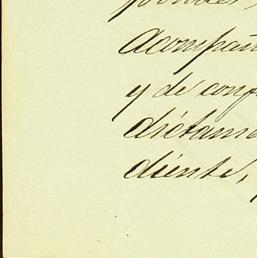 acompañ
y de conf
dictame
diente,